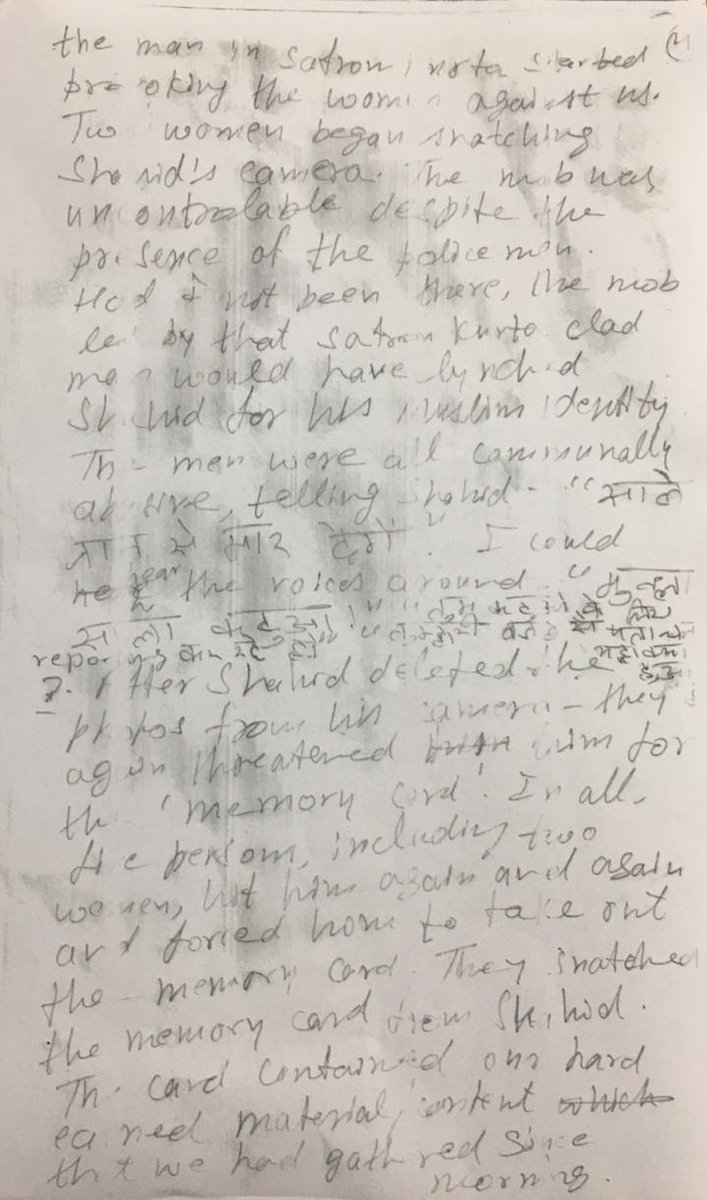 the man in satron kurta started
provoking the women against us.
Two women began snatching
Shahid's camera. The mob was
uncontrolable despite the
presence of the policeman.
Had I not been there, the mob
led by that satron kurta clad
man would have lynched
Shahid for his Muslim identity
The men were all communally
abusive, telling Shahid - "साले
जान से मार देंगे". I could
hear the voices around. "मुल्ला
साला कटुआ!"
reporting कर रहे हो"
7. After Shahid deleted the
photos from his camera - they
again threatened him for
the 'memory card'. In all,
five persons, including two
women, hit him again and again
and forced him to take out
the memory card. They snatched
the memory card from Shahid.
The card contained our hard
earned material, content which
that we had gathered since
morning.